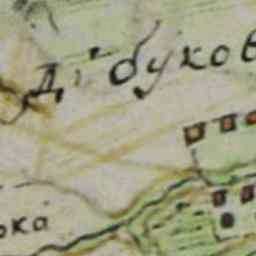 Д: буков
ока